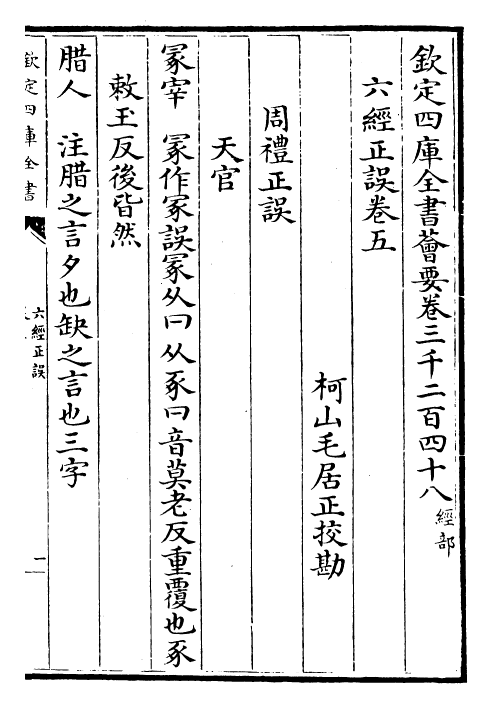 欽定四庫全書薈要卷三千二百四十八經部
六經正誤卷五
柯山毛居正挍勘
周禮正誤
天官
冡宰　冡作冢誤冡从冃从豕冃音莫老反重覆也豕
敕玉反後皆然
腊人　注腊之言夕也缺之言也三字
欽定四庫全書
六經正誤
一